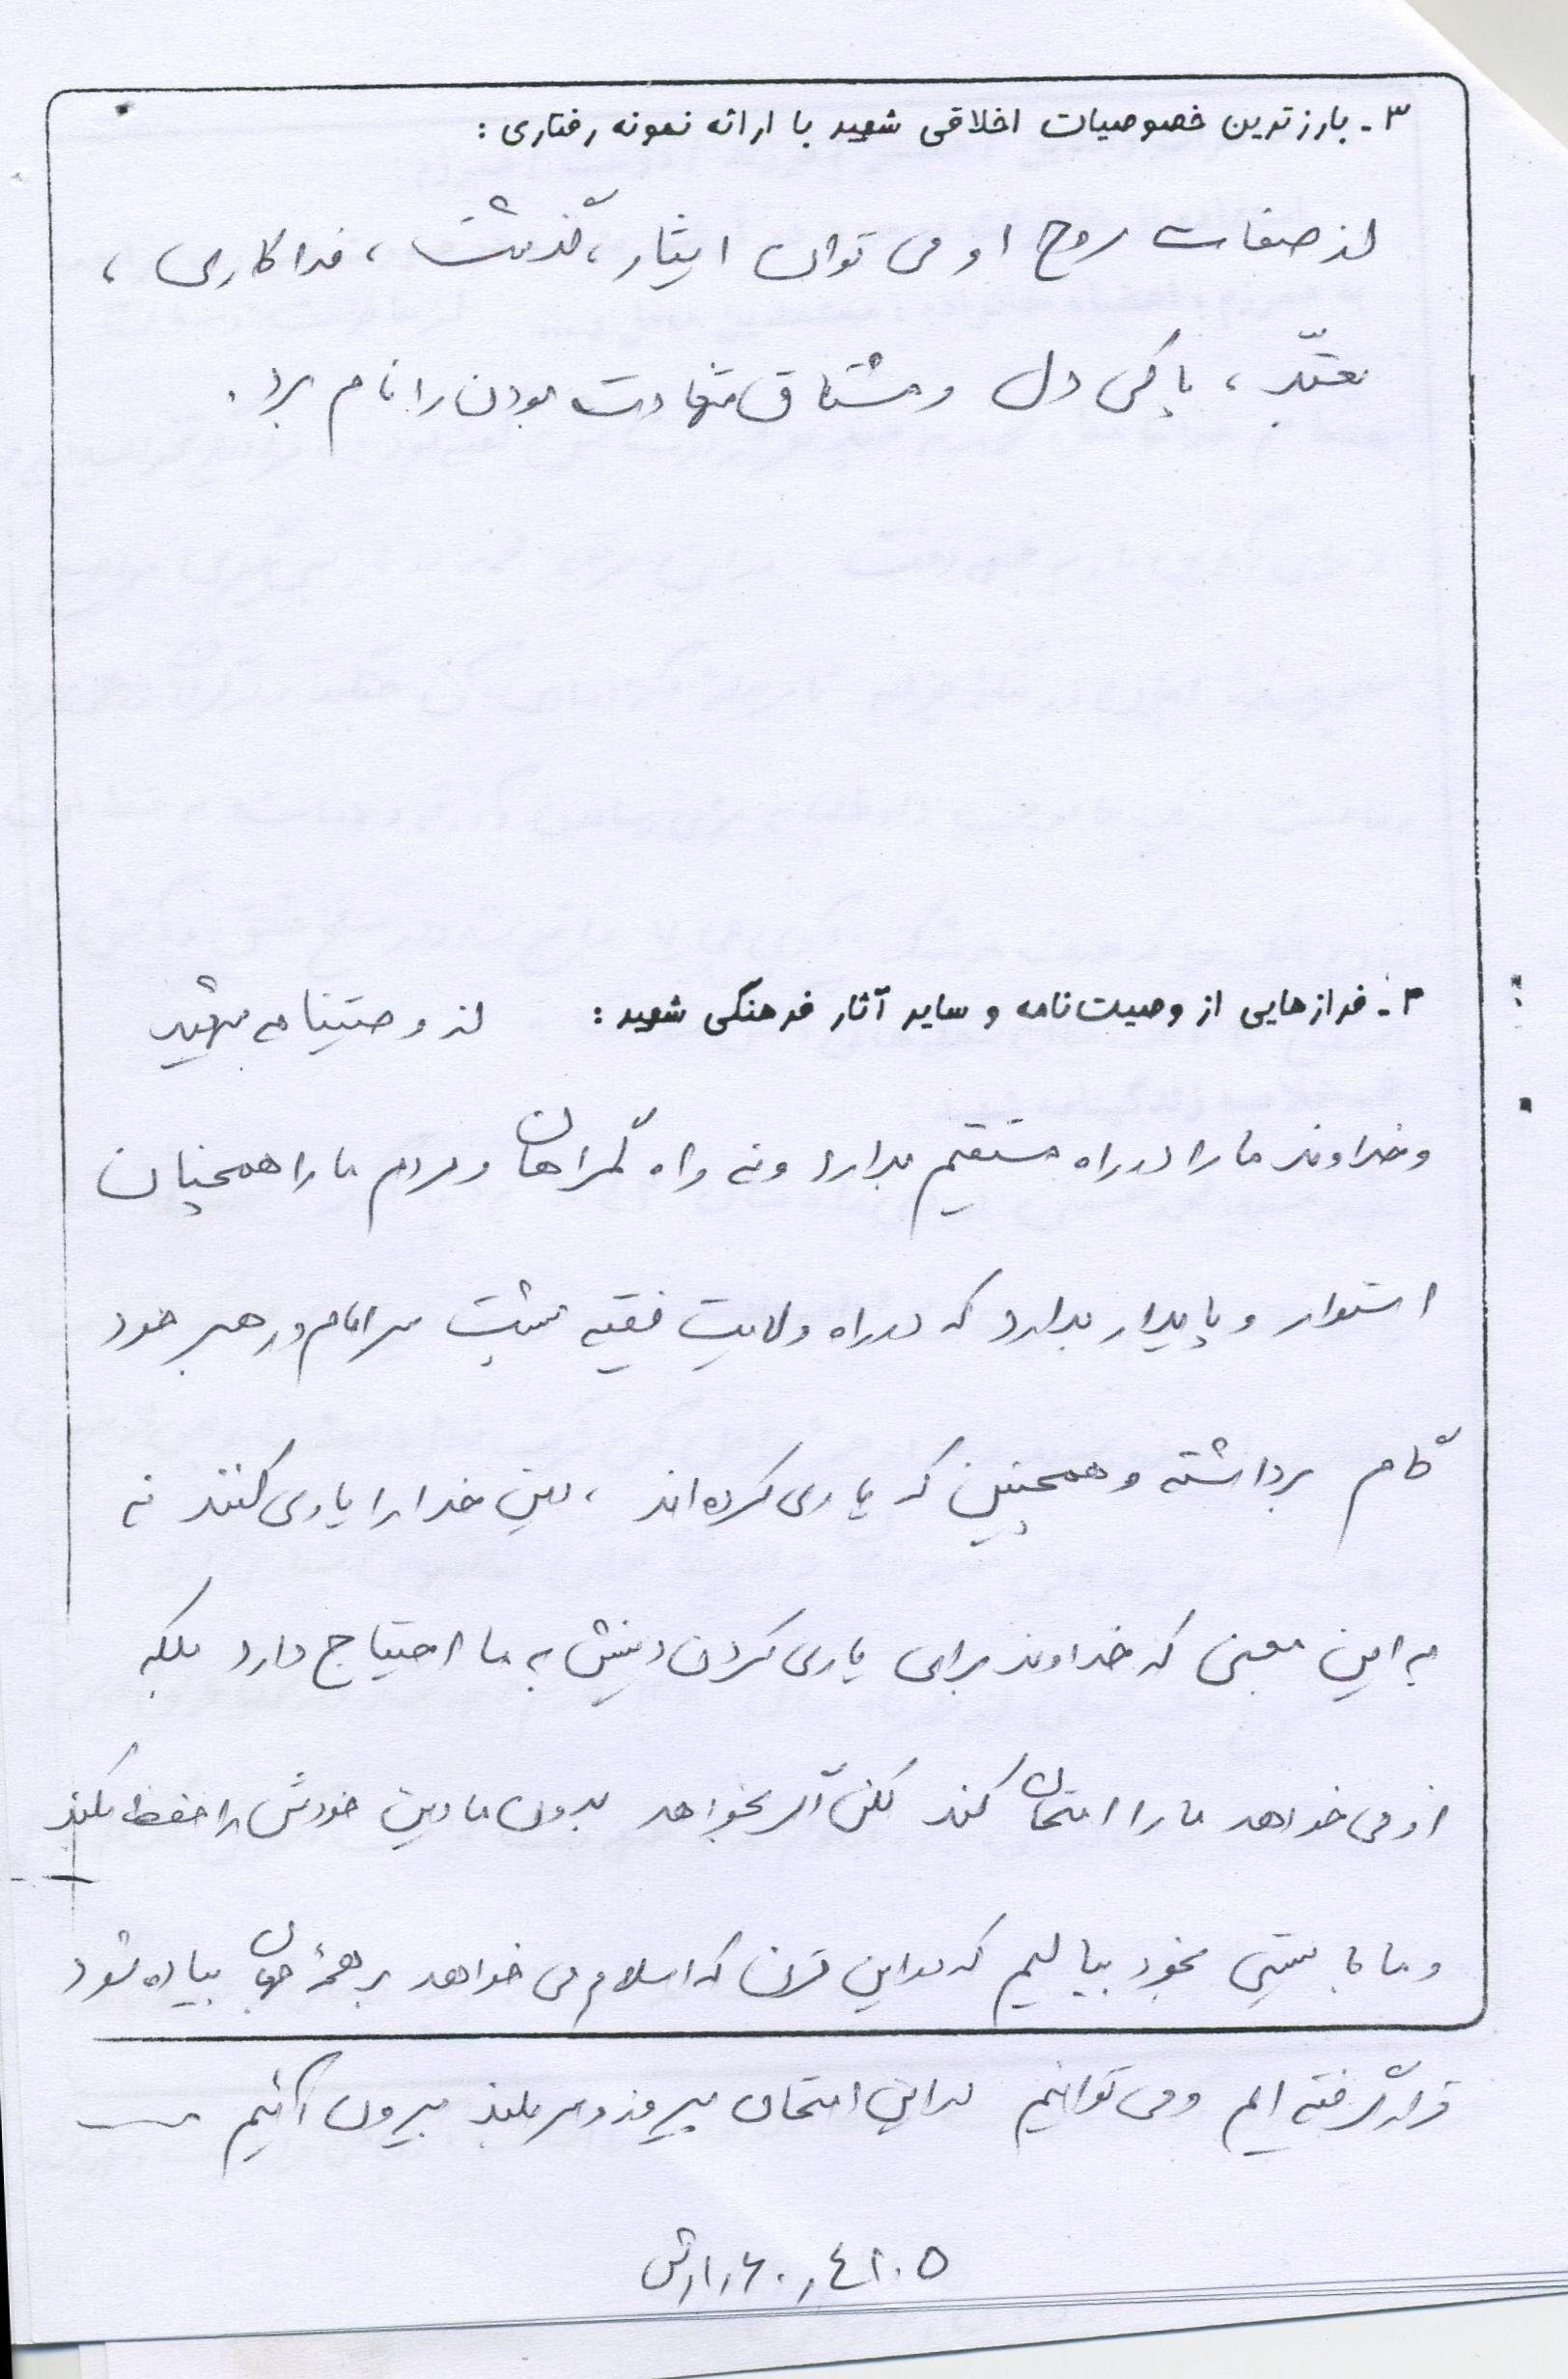 ۳ - بارزترین خصوصیات اخلاقی شهید با ارائه نمونه رفتاری :
از صفات روح او می توان ایثار، گذشت ، فداکاری ،
تعبّد ، پاکی دل و مشتاق شهادت بودن را نام برد .
۴ - فرازهایی از وصیت‌نامه و سایر آثار فرهنگی شهید : از وصیتنامه شهید
و خداوند ما را در راه مستقیم بدارد و نه راه گمراهان و مردم ما را همچنان
استوار و پایدار بدارد که در راه ولایت فقیه پشت سر امام و رهبر خود
گام برداشته و همچنین که یاری کرده اند ، دین خدا را یاری کنند نه
به این معنی که خداوند برای یاری کردن دینش به ما احتیاج دارد بلکه
او می خواهد ما را امتحان کند لکن اگر بخواهد بدون ما دین خودش را حفظ میکند
و ما بایستی بخود ببالیم که در این قرن که اسلام می خواهد بر همهٔ جهان پیاده شود
قرار گرفته ایم و می توانیم در این امتحان پیروز و سربلند بیرون آئیم